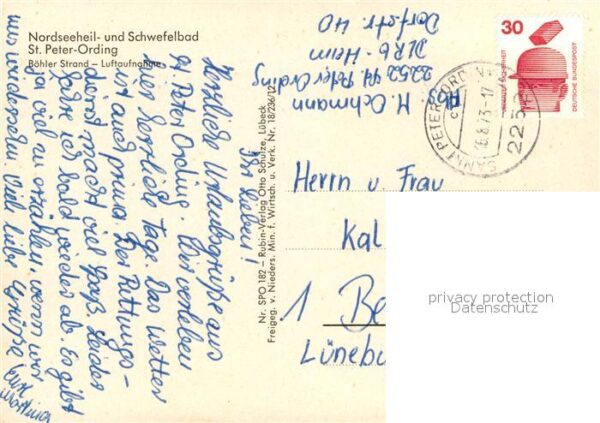 Nordseeheil- und Schwefelbad
St. Peter-Ording
Böhler Strand – Luftaufnahme
Ihr Lieben!
Herzliche Urlaubsgrüße aus
St. Peter Ording. Wir verleben
hier herrliche Tage. Das Wetter
ist auch prima. Der Rettungs-
dienst macht viel Spaß. Leider
fahre ich bald wieder ab. Es gibt
ja viel zu erzählen, wenn wir
uns wiedersehn. Viele liebe Grüße
Nr. SPO 182 – Rubin-Verlag Otto Schulze, Lübeck
Freigeg. v. Nieders. Min. f. Wirtsch. u. Verk. Nr. 18/236/12
Abs. M.
2252 St. Peter Ording
DLRG-Heim
Dorfstr. 40
30
DEUTSCHE BUNDESPOST
SANKT PETER-ORDING
c
16.8.73-17
2252
Herrn u. Frau
Kal
1 Be
Lünebu
privacy protection
Datenschutz